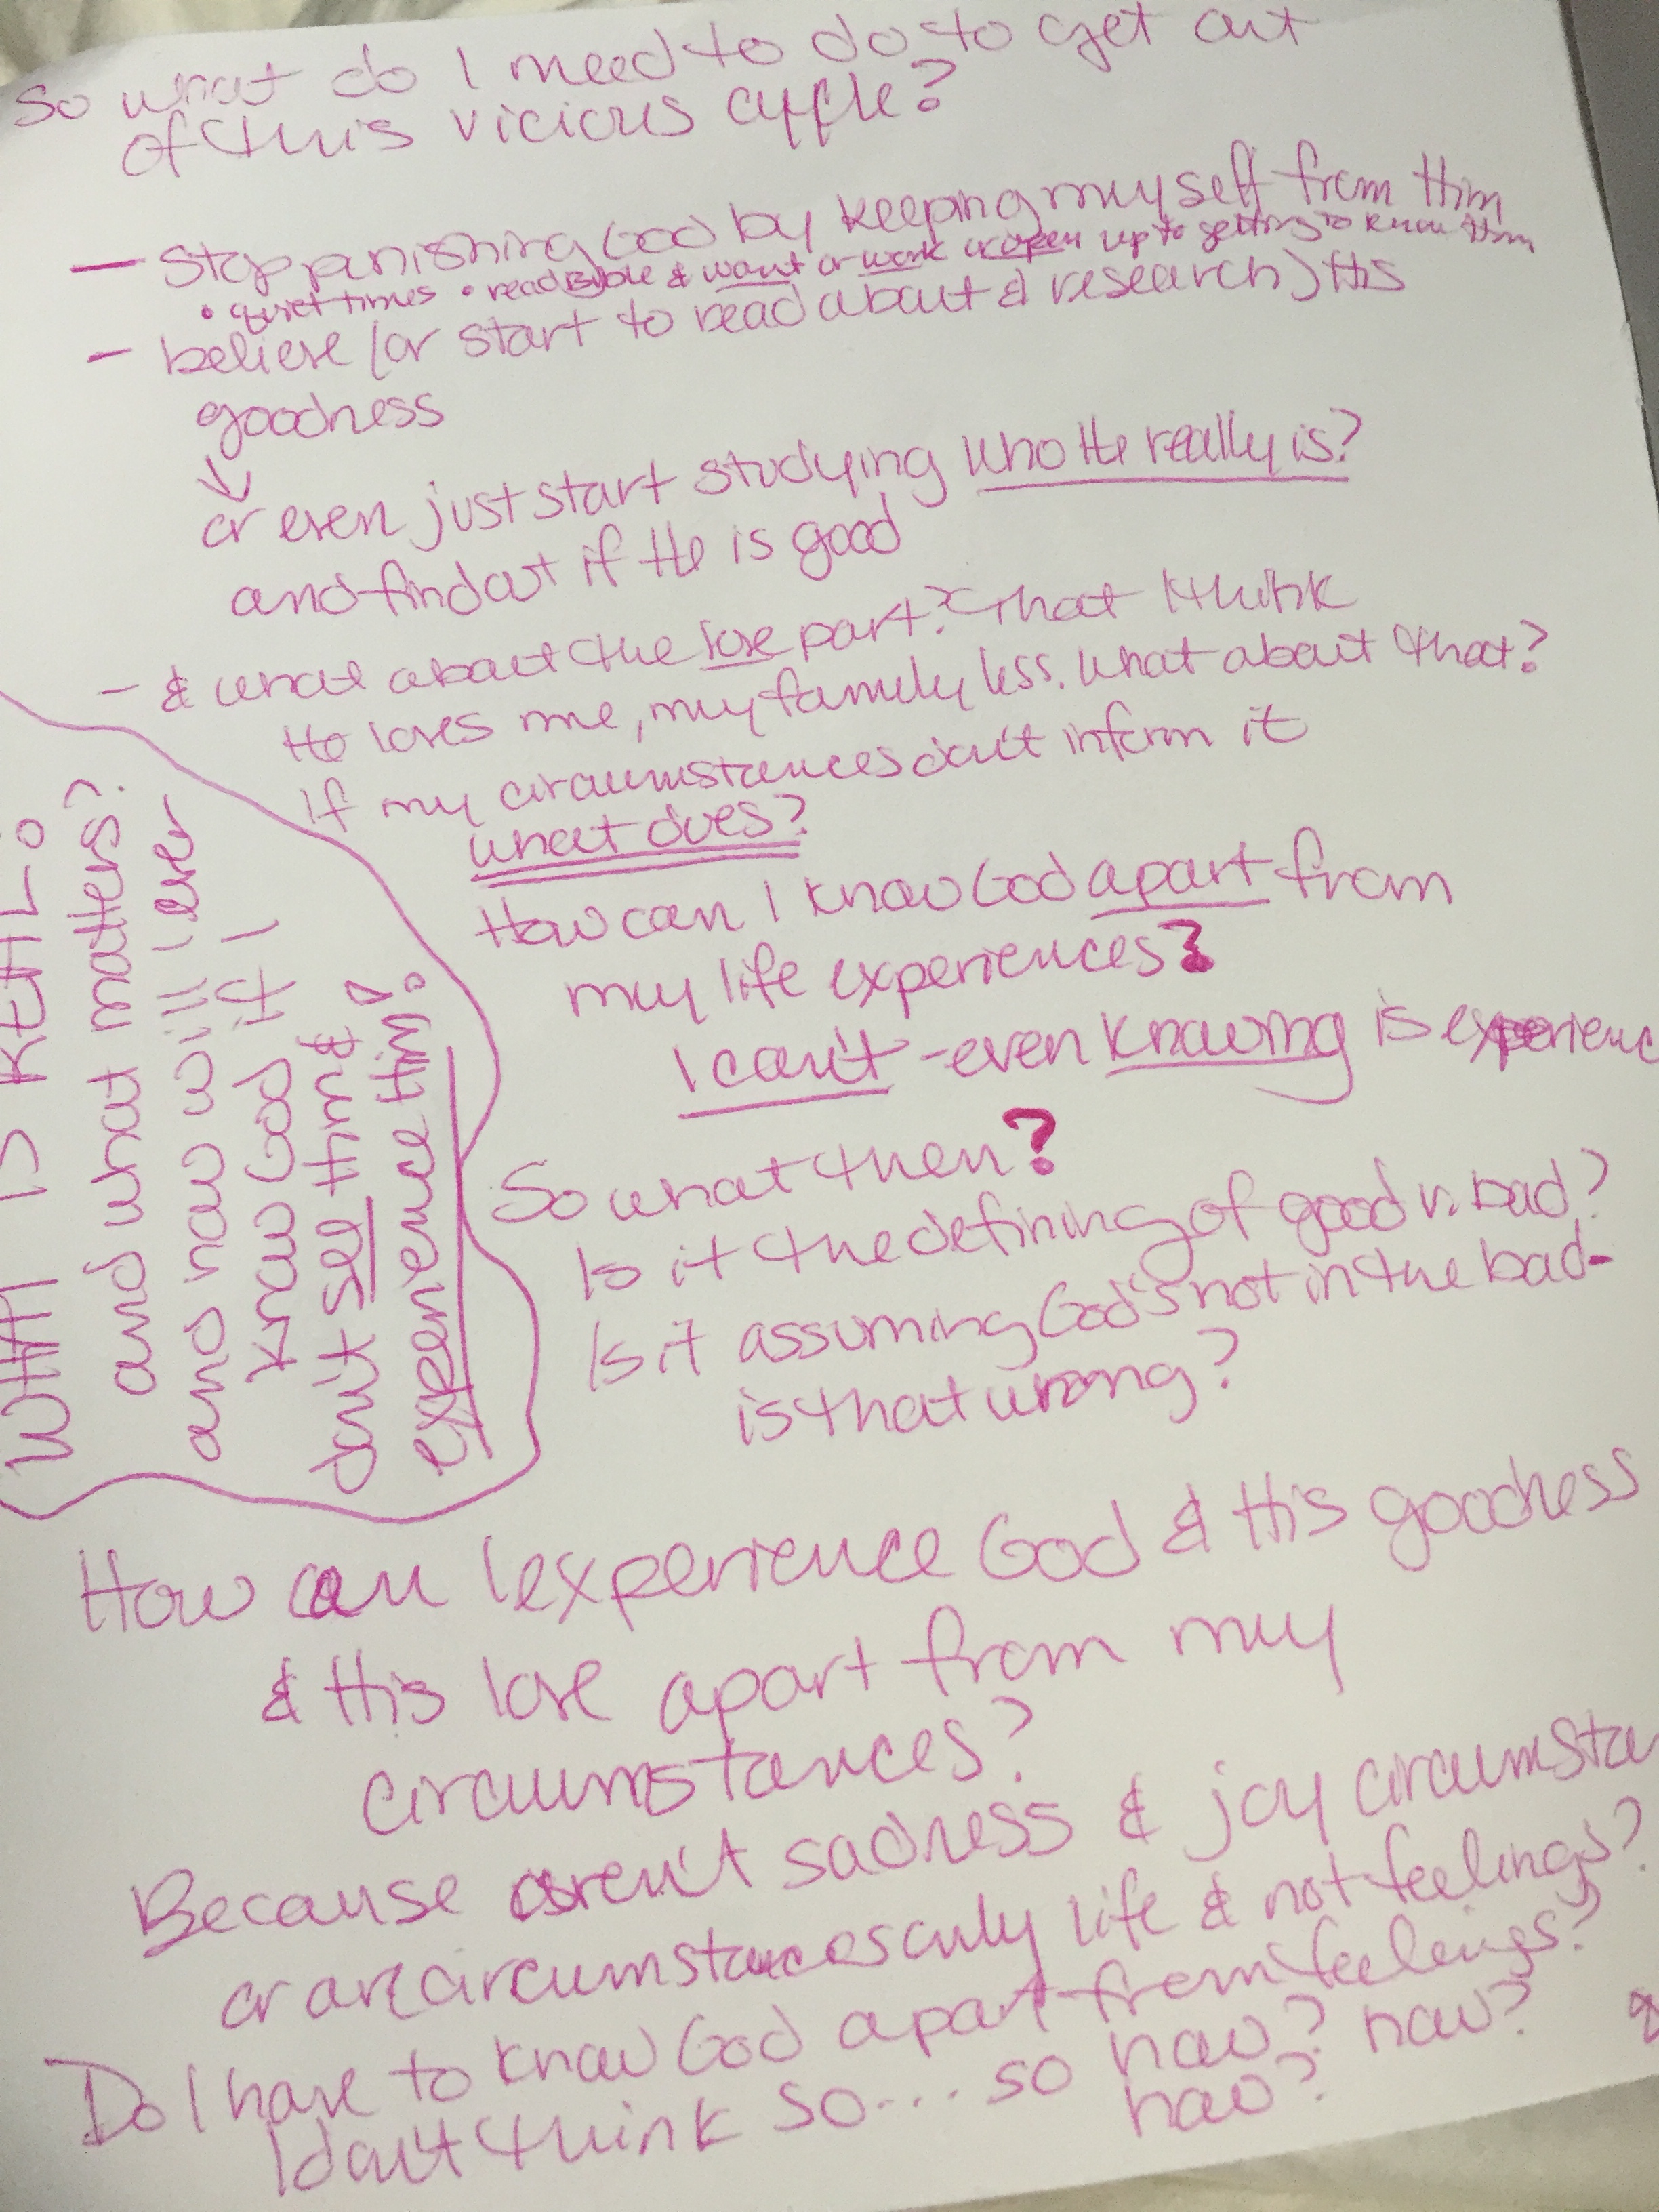 So what do I need to do to get out
of this vicious cycle?
— Stop punishing God by keeping myself from Him
• quiet times • read Bible & want or work or open up to getting to know Him
— believe (or start to read about & research) His
goodness
↓
or even just start studying who He really is?
and find out if He is good
— & what about the love part? That I think
He loves me, my family less. What about that?
If my circumstances don't inform it
what does?
How can I know God apart from
my life experiences?
I can't - even knowing is experienc
So what then?
Is it the defining of good v. bad?
Is it assuming God's not in the bad-
is that wrong?
WHAT IS REAL?
and what matters?
and how will I ever
know God if I
don't see Him &
experience Him?
How can I experience God & His goodness
& His love apart from my
circumstances?
Because aren't sadness & joy circumsta
or are circumstances only life & not feelings?
Do I have to know God apart from feelings?
I don't think so... so how? how?
how?